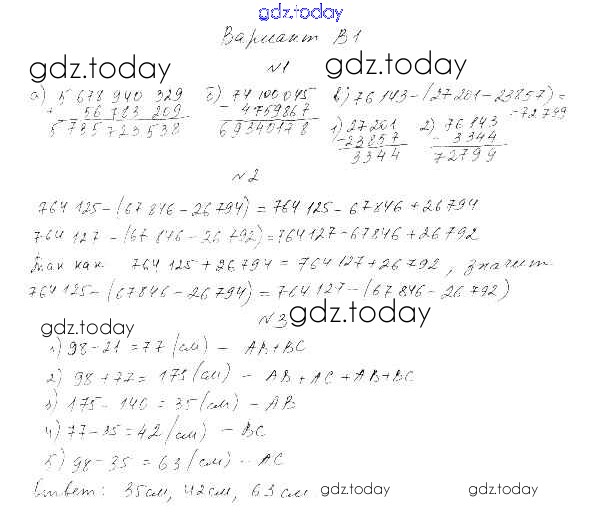 gdz.today
Вариант В1
№1
gdz.today gdz.today
а) 5 678 940 329 б) 74 100 045 в) 76 143 - (27 201 - 23857) =
+ 56 783 209 - 4759867 = 72799
5 735 723 538 69340178 1) 27 201 2) 76 143
- 23 857 - 3 344
3344 72799
№2
764 125 - (67 846 - 26 794) = 764 125 - 67846 + 26794
764 127 - (67 846 - 26 792) = 764127 - 67846 + 26792
Так как 764 125 + 26 794 = 764 127 + 26 792, значит
764 125 - (67846 - 26 794) = 764 127 - (67 846 - 26 792)
gdz.today №3 gdz.today
1) 98 - 21 = 77 (см) - AB + BC
2) 98 + 77 = 175 (см) - AB + AC + AB + BC
3) 175 - 140 = 35 (см) - AB
4) 77 - 35 = 42 (см) - BC
5) 98 - 35 = 63 (см) - AC
Ответ: 35 см, 42 см, 63 см gdz.today gdz.today